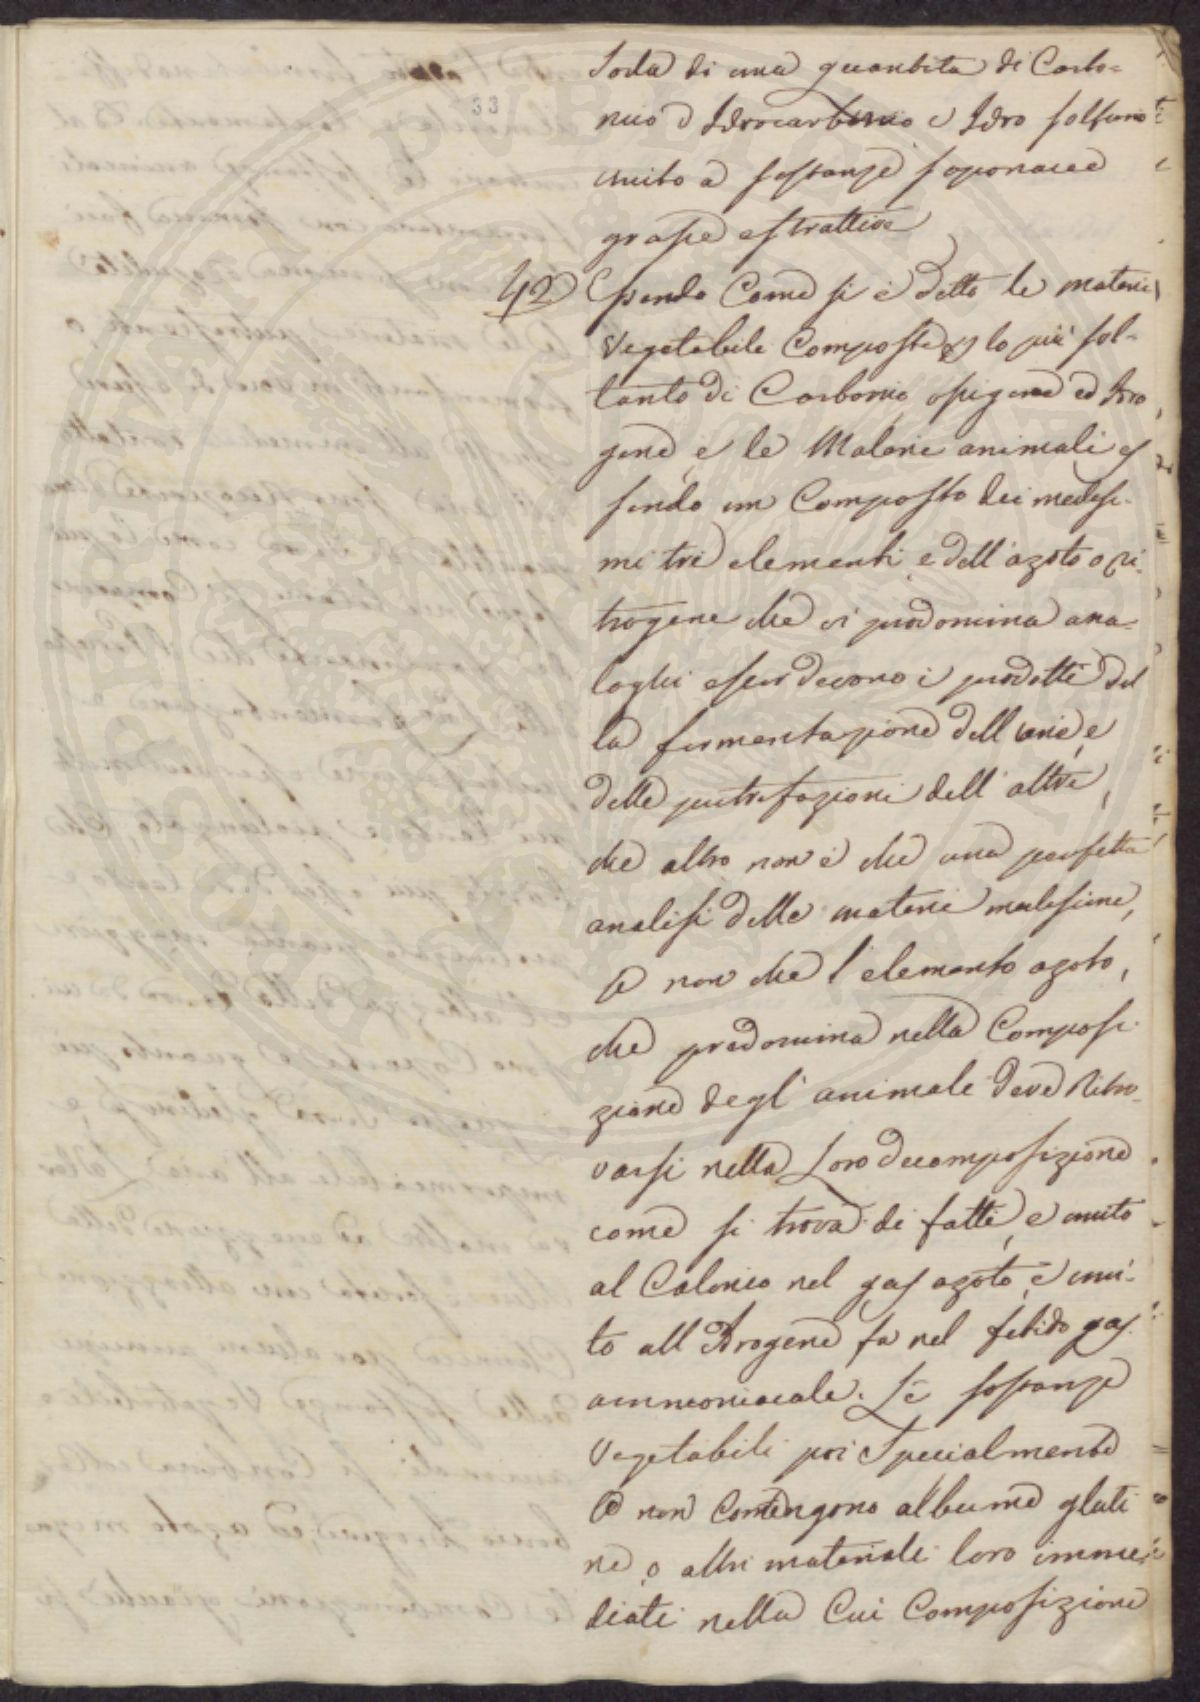 33
soda di una quantita di Carbo=
nico d Idrocarbonio e Idro solfurio
unito a sostanze saponacee
grasse estrattive
42 Essendo Come si è detto le materie
Vegetabile Composte p lo più sol-
tanto di Carbonio, ossigene ed Idro
gene, e le Materie animali es
sendo un Composto dei medesi-
mi tre elementi, e dell'azoto o ni-
trogene che vi predomina ana-
loghi esser devono i prodotti del
la fermentazione dell'unie, e
delle putrefazioni dell'altre,
che altro non è che una perfetta
analisi delle materie medesime,
Se non che l'elemento azoto,
che predomina nella Composi-
zione degl'animale deve Ritro-
varsi nella Loro decomposizione
come si trova di fatti, e unito
al Calorico nel gas azoto, e uni-
to all'Idrogene fa nel fetido gas
ammoniacale. Le sostanze
Vegetabili poi Specialmente
Se non Contengono albume gluti
ne, o altri materiale loro imme
diati nella Cui Composizione